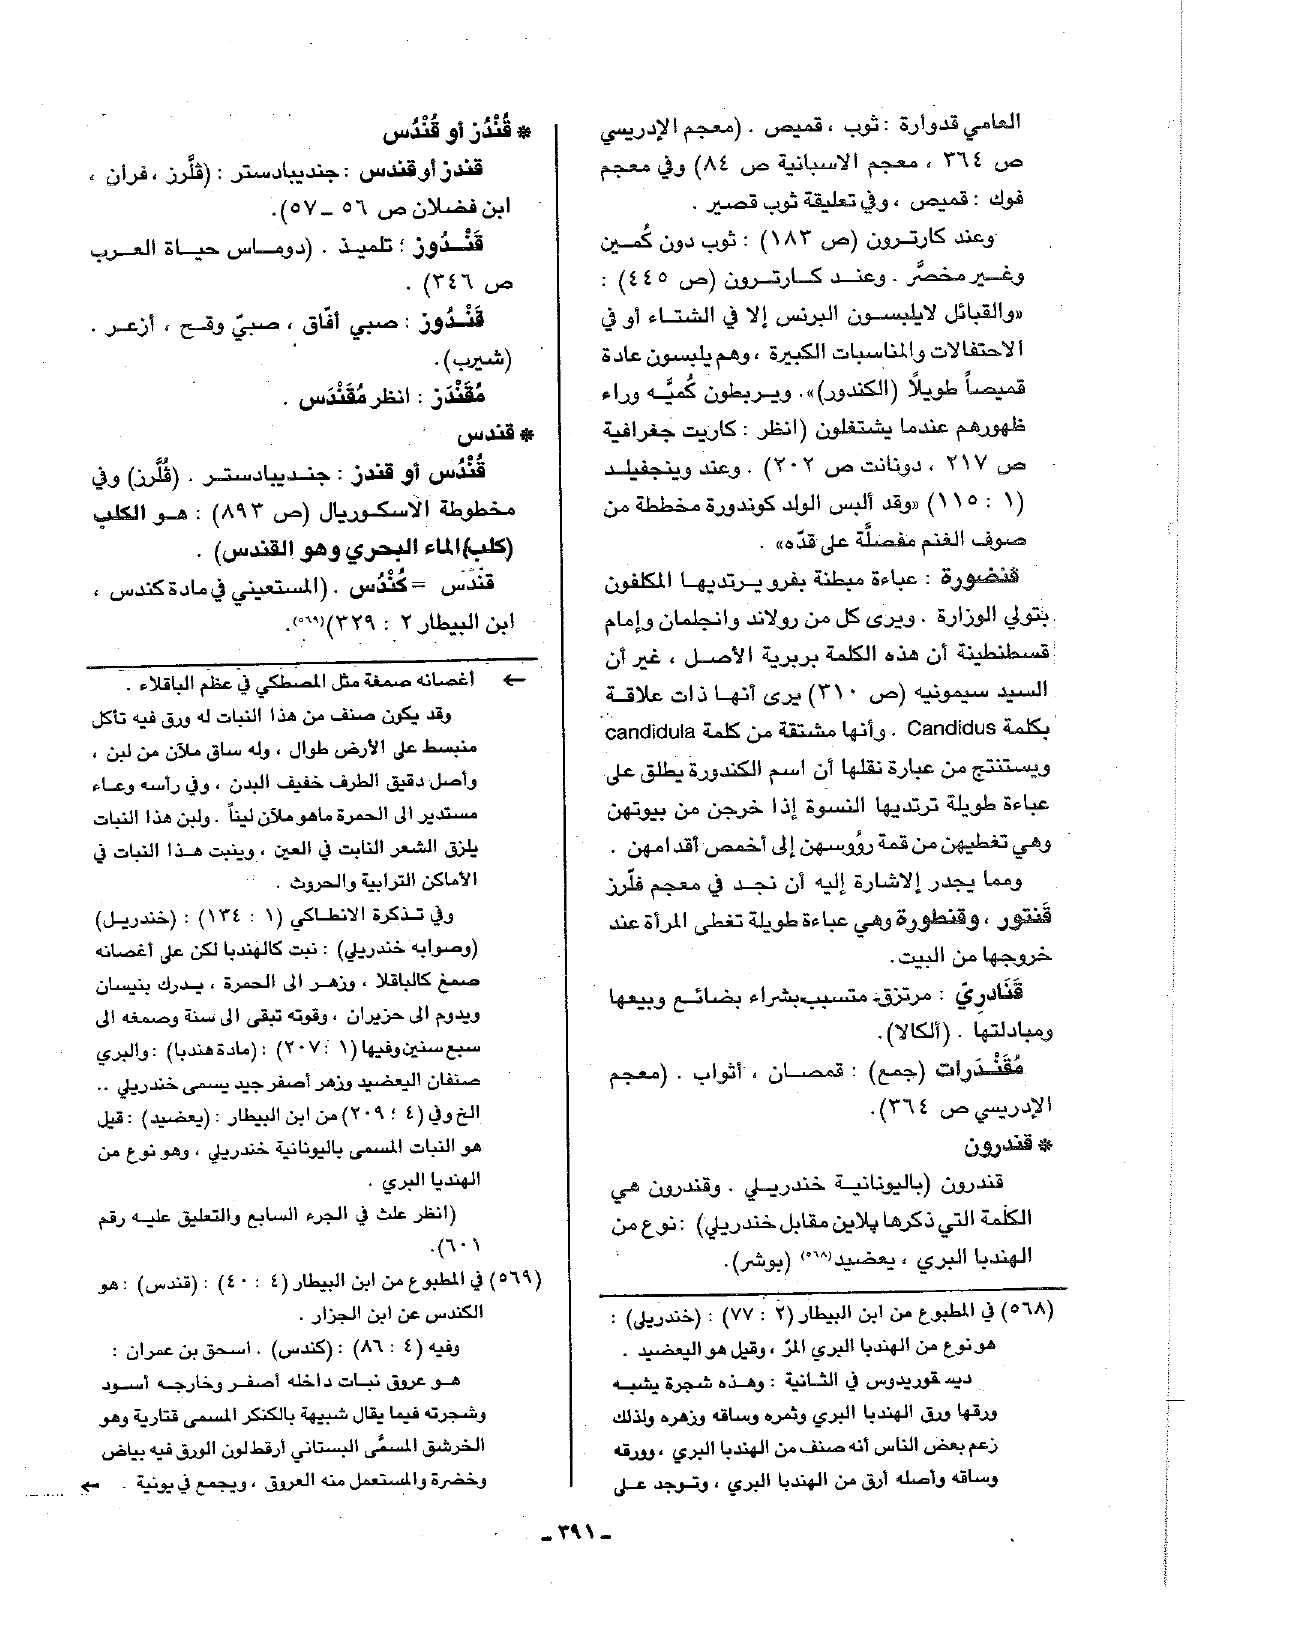 العامي قدوارة : ثوب ، قميص . (معجم الإدريسي
ص ٣٦٤ ، معجم الاسبانية ص ٨٤) وفي معجم
فوك : قميص ، وفي تعليقة ثوب قصير .
وعند كارترون (ص ١٨٣) : ثوب دون كُمين
وغير مخصَّر . وعند كارترون (ص ٤٤٥) :
«والقبائل لايلبسون البرنس إلا في الشتاء أو في
الاحتفالات والمناسبات الكبيرة ، وهم يلبسون عادة
قميصاً طويلًا (الكندور)». ويربطون كُميَّه وراء
ظهورهم عندما يشتغلون (انظر : كاريت جغرافية
ص ٢١٧ ، دونانت ص ٢٠٢) . وعند وينجفيلد
(١ : ١١٥) «وقد ألبس الولد كوندورة مخططة من
صوف الغنم مفصلَّة على قدّه» .
قنضورة : عباءة مبطنة بفرو يرتديها المكلفون
بتولي الوزارة . ويرى كل من رولاند وانجلمان وإمام
قسطنطينة أن هذه الكلمة بربرية الأصل ، غير أن
السيد سيمونيه (ص ٣١٠) يرى أنها ذات علاقة
بكلمة Candidus . وأنها مشتقة من كلمة candidula
ويستنتج من عبارة نقلها أن اسم الكندورة يطلق على
عباءة طويلة ترتديها النسوة إذا خرجن من بيوتهن
وهي تغطيهن من قمة رؤوسهن إلى أخمص أقدامهن .
ومما يجدر الاشارة إليه أن نجد في معجم فلّرز
قَنتور ، وقنطورة وهي عباءة طويلة تغطى المرأة عند
خروجها من البيت .
قَنَادريّ : مرتزق متسبب بشراء بضائع وبيعها
ومبادلتها . (ألكالا).
مُقَنْدَرات (جمع) : قمصان ، أثواب . (معجم
الإدريسي ص ٣٦٤).
* قندرون
قندرون (باليونانية خندريلي . وقندرون هي
الكلمة التي ذكرها پلاين مقابل خندريلي) : نوع من
الهندبا البري ، يعضيد(٥٦٨) (بوشر).
(٥٦٨) في المطبوع من ابن البيطار (٢ : ٧٧) : (خندريلي) :
هو نوع من الهندبا البري المرّ ، وقيل هو اليعضيد .
ديسقوريدوس في الثانية : وهذه شجرة يشبه
ورقها ورق الهندبا البري وثمره وساقه وزهره ولذلك
زعم بعض الناس أنه صنف من الهندبا البري ، وورقه
وساقه وأصله أرق من الهندبا البري ، وتوجد على
* قُنْدُز أو قُنْدُس
قندز أو قندس : جنديبادستر : (فلَّرز ، فران ،
ابن فضلان ص ٥٦ ــ ٥٧).
قَنْدُوز : تلميذ . (دوماس حياة العرب
ص ٣٤٦) .
قَنْدُوز : صبي أفّاق ، صبيّ وقح ، أزعر .
(شيرب).
مُقَنْدَز : انظر مُقَنْدَس .
* قندس
قُنْدُس أو قندز : جنديبادستر . (فُلَّرز) وفي
مخطوطة الاسكوريال (ص ٨٩٣) : هو الكلب
(كلب) الماء البحري وهو القندس) .
قَنْدَس = كُنْدُس . (المستعيني في مادة كندس ،
ابن البيطار ٢ : ٣٢٩)(٥٦٩).
← أغصانه صمغة مثل المصطكي في عظم الباقلاء .
وقد يكون صنف من هذا النبات له ورق فيه تأكل
منبسط على الأرض طوال ، وله ساق ملآن من لبن ،
وأصل دقيق الطرف خفيف البدن ، وفي رأسه وعاء
مستدير الى الحمرة ماهو ملآن ليناً . ولبن هذا النبات
يلزق الشعر النابت في العين ، وينبت هذا النبات في
الأماكن الترابية والحروث .
وفي تذكرة الانطاكي (١ : ١٣٤) : (خندريل)
(وصوابه خندريلي) : نبت كالهندبا لكن على أغصانه
صمغ كالباقلا ، وزهر الى الحمرة ، يدرك بنيسان
ويدوم الى حزيران ، وقوته تبقى الى سنة وصمغه الى
سبع سنين وفيها (١ : ٢٠٧) : (مادة هندبا) : والبري
صنفان اليعضيد وزهر أصفر جيد يسمى خندريلي ..
الخ وفي (٤ : ٢٠٩) من ابن البيطار : (يعضيد) : قيل
هو النبات المسمى باليونانية خندريلي ، وهو نوع من
الهنديا البري .
(انظر علث في الجزء السابع والتعليق عليه رقم
٦٠١).
(٥٦٩) في المطبوع من ابن البيطار (٤ : ٤٠) : (قندس) : هو
الكندس عن ابن الجزار .
وفيه (٤ : ٨٦) : (كندس) . اسحق بن عمران :
هو عروق نبات داخله أصفر وخارجه أسود
وشجرته فيما يقال شبيهة بالكنكر المسمى قنارية وهو
الخرشق المسمَّى البستاني أرقط لون الورق فيه بياض
وخضرة والمستعمل منه العروق ، ويجمع في يونية . ←
ــ ٣٩١ ــ